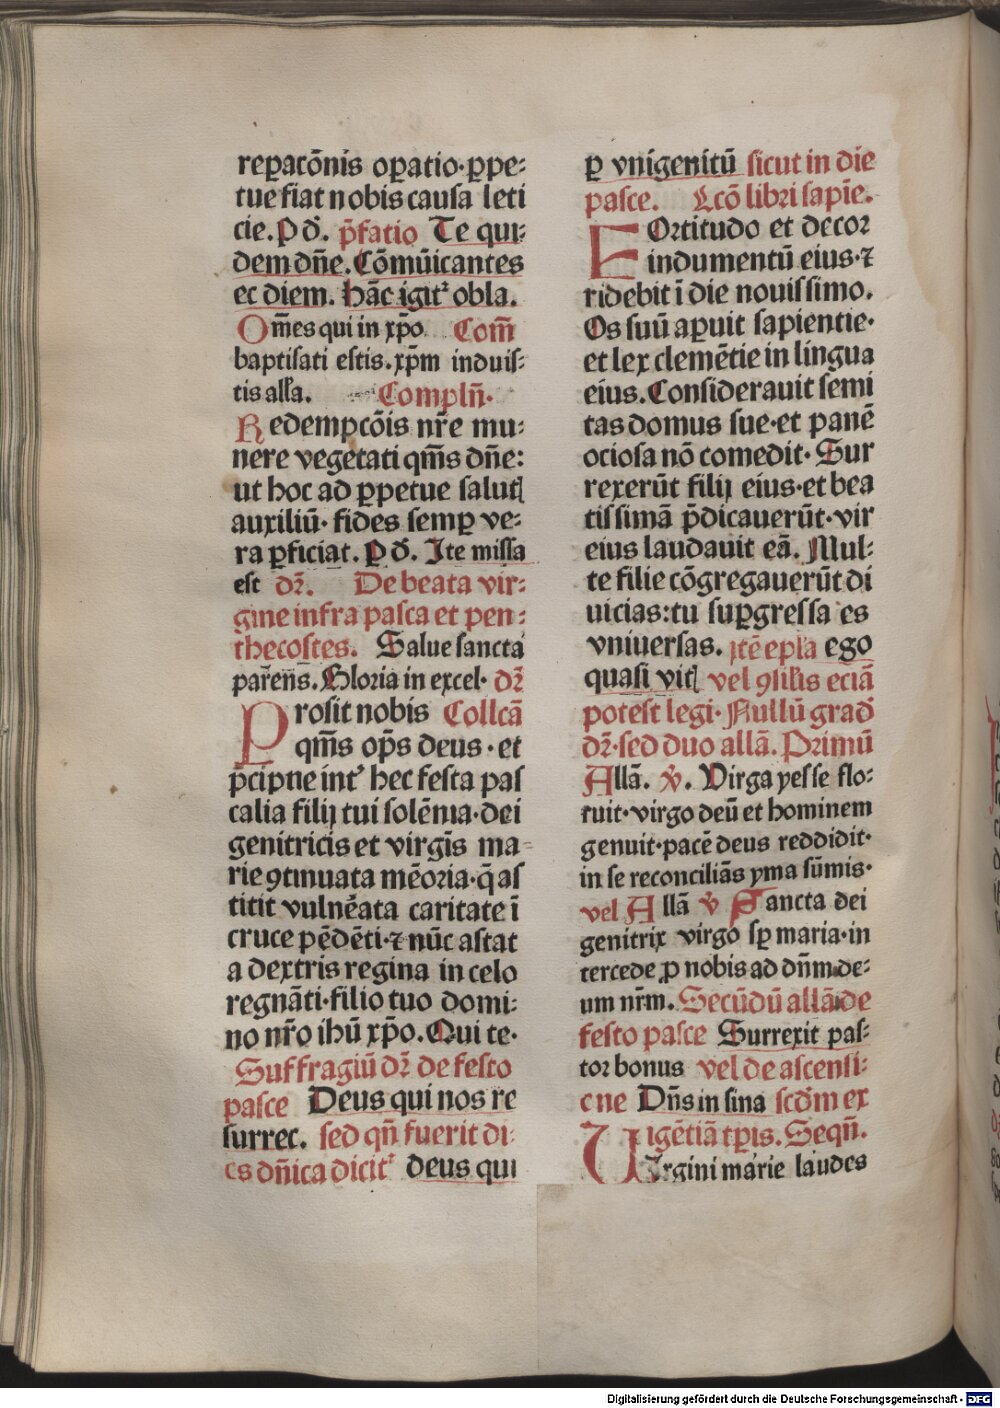 reꝑacōnis oꝑatio·ꝑpe⸗
tue fiat nobis causa leti
cie. P d̄. p̄fatio Te qui⸗
dem dn̄e. Cōmūicantes
ec diem. hāc igit᷑ obla.
Om̄es qui in xp̄o. Com̄
baptisati estis. xp̄m induis⸗
tis alla. Compln̄.
Redempcōis nr̄e mu⸗
nere vegetati qm̄s dn̄e:
ut hoc ad ꝑpetue salutꝭ
auxiliū· fides semꝑ ve⸗
ra ꝑficiat. P d̄. Ite missa
est dr̄. De beata vir⸗
gine infra pasca et pen⸗
thecostes. Salue sancta
paren̄s. Gloria in excel· dr̄
Prosit nobis Collcā
qm̄s op̄s deus· et
p̄cipue int᷑ hec festa pas
calia filij tui solēnia· dei
genitricis et virgīs ma⸗
rie ꝯtinuata mēoria· q̄ as
titit vulnēata caritate ī
cruce pēdēti· ⁊ nūc astat
a dextris regina in celo
regnāti· filio tuo domi⸗
no nr̄o ihū xp̄o. Qui te·
Suffragiū dr̄ de festo
pasce Deus qui nos re
surrec. sed qn̄ fuerit di⸗
es dn̄ica dicit᷑ deus qui
ꝑ vnigenitū sicut in die
pasce. Lcō libri sapīe.
FOrtitudo et decor
indumentū eius· ⁊
ridebit ī die nouissimo.
Os suū aꝑuit sapientie·
et lex clemētie in lingua
eius. Considerauit semi
tas domus sue· et panē
ociosa nō comedit· Sur
rexerūt filij eius· et bea
tissimā p̄dicauerūt· vir
eius laudauit eā. Mul⸗
te filie cōgregauerūt di
uicias: tu suꝑgressa es
vniuersas. Itē epla ego
quasi vitꝭ vel ꝯsilis eciā
potest legi· Nullū grad̄
dr̄· sed duo allā. Primū
Allā. v̄. Virga yesse flo⸗
ruit· virgo deū et hominem
genuit· pacē deus reddidit·
in se reconciliās yma sūmis·
vel Allā v̄ Sancta dei
genitrix virgo sꝑ maria· in
tercede ꝓ nobis ad dn̄m de⸗
um nr̄m. Secūdū allā de
festo pasce Surrexit pas⸗
tor bonus vel de ascensi⸗
one Dn̄s in sina scd̄m ex
igētiā tꝑis. Seqn̄.
Virgini marie laudes
Digitalisierung gefördert durch die Deutsche Forschungsgemeinschaft - DFG